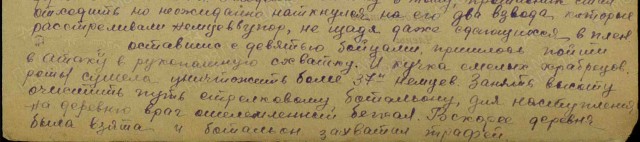 отходить но неожиданно наткнулся на его два взвода которые
расстреливали немцев в упор, не щадя даже сдающихся в плен
оставшись с девятью бойцами, пришлось пойти
в атаку в рукопашную схватку. И кучка смелых храбрецов
роты сумела уничтожить более 37ми немцев. Занять высоту
очистить путь стрелковому, батальону, для наступления
на деревню враг ошеломленный бежал. Вскоре деревня
была взята и батальон захватил трофеи